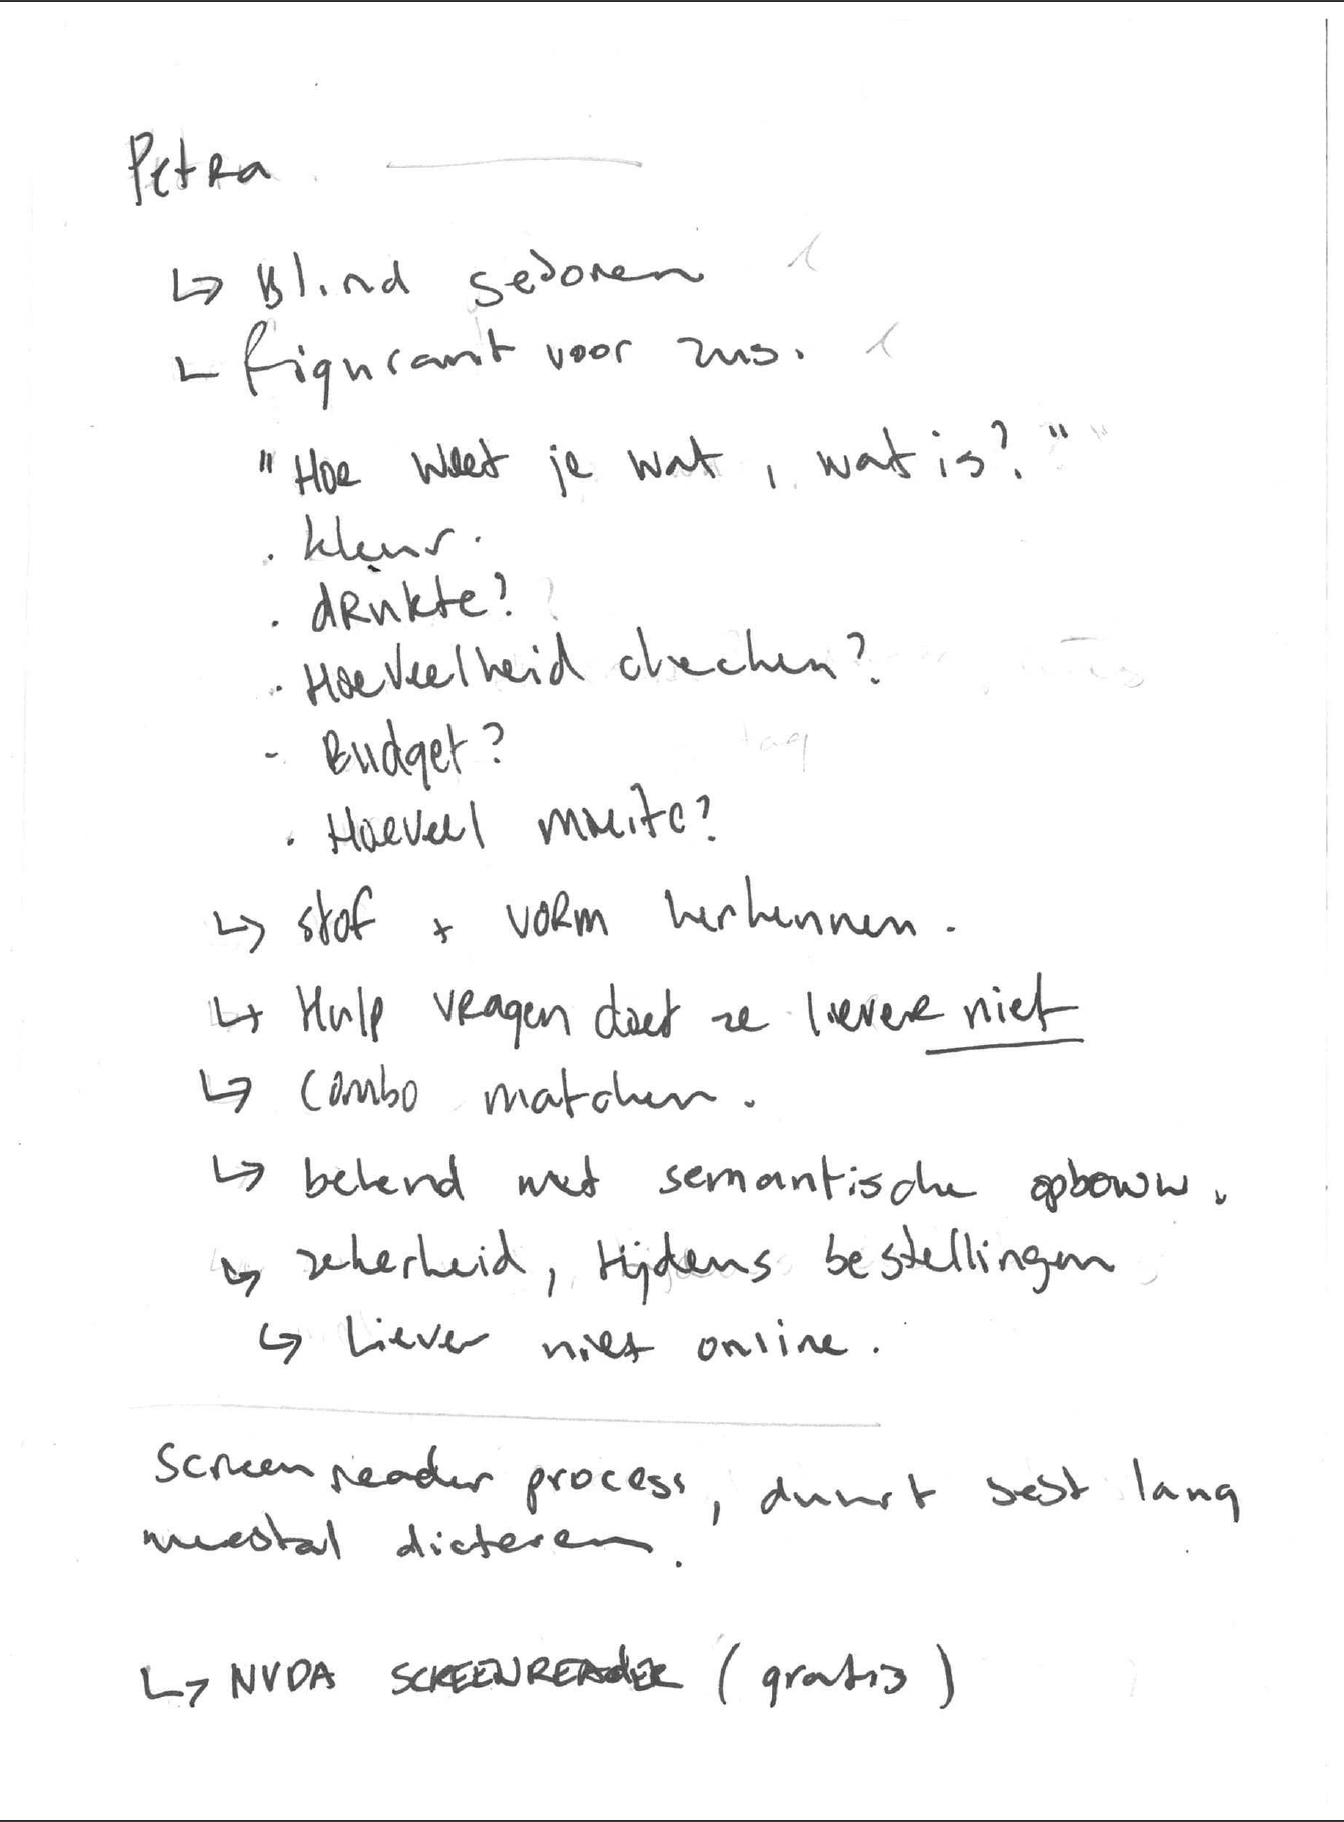 Petra
↳ Blind geboren
↳ figurant voor zus.
"Hoe weet je wat, wat is?"
· kleur.
· drukte?
· Hoeveelheid checken?
- Budget?
· Hoeveel moeite?
↳ stof + vorm herkennen.
↳ Hulp vragen doet ze liever niet
↳ combo matchen.
↳ bekend met semantische opbouw.
↳ zekerheid, tijdens bestellingen
↳ Liever niet online.
Screenreader process, duurt best lang
meestal dicteren.
↳ NVDA SCREENREADER (gratis)